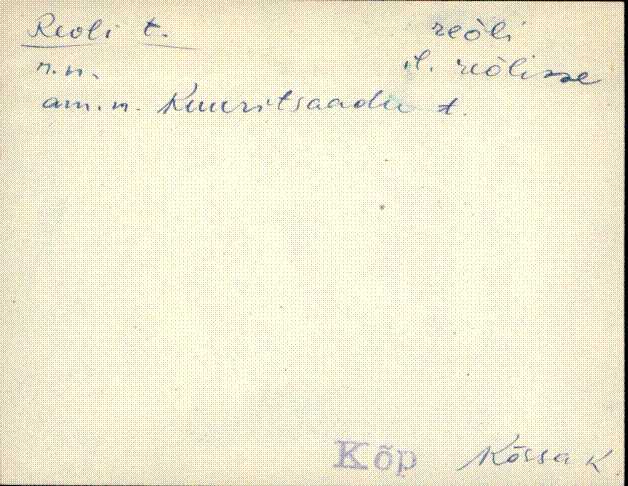 Reoli t. reòli
r.n. il. reòlisse
am.n. Kuuritsaadu t.
Kõp Kõssa k